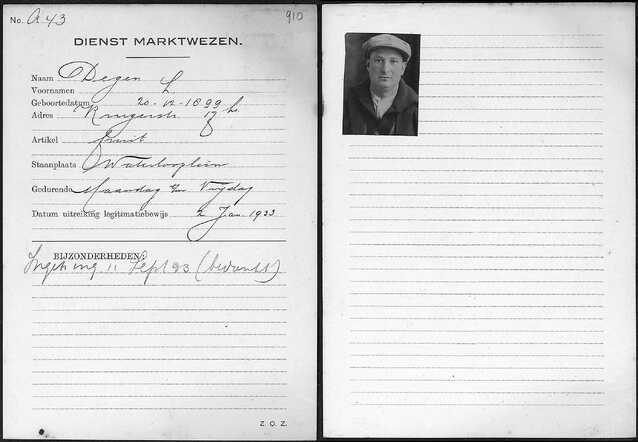 No. A 43
910
DIENST MARKTWEZEN.
Naam Degen
Voornamen L
Geboortedatum 20-12-1899
Adres Krugerstr 17 hs
Artikel fruit
Staanplaats Waterlooplein
Gedurende Maandag t/m Vrijdag
Datum uitreiking legitimatiebewijs 2 Jan. 1933
BIJZONDERHEDEN:
11 Sept 33 (bedankt)
Z. O. Z.